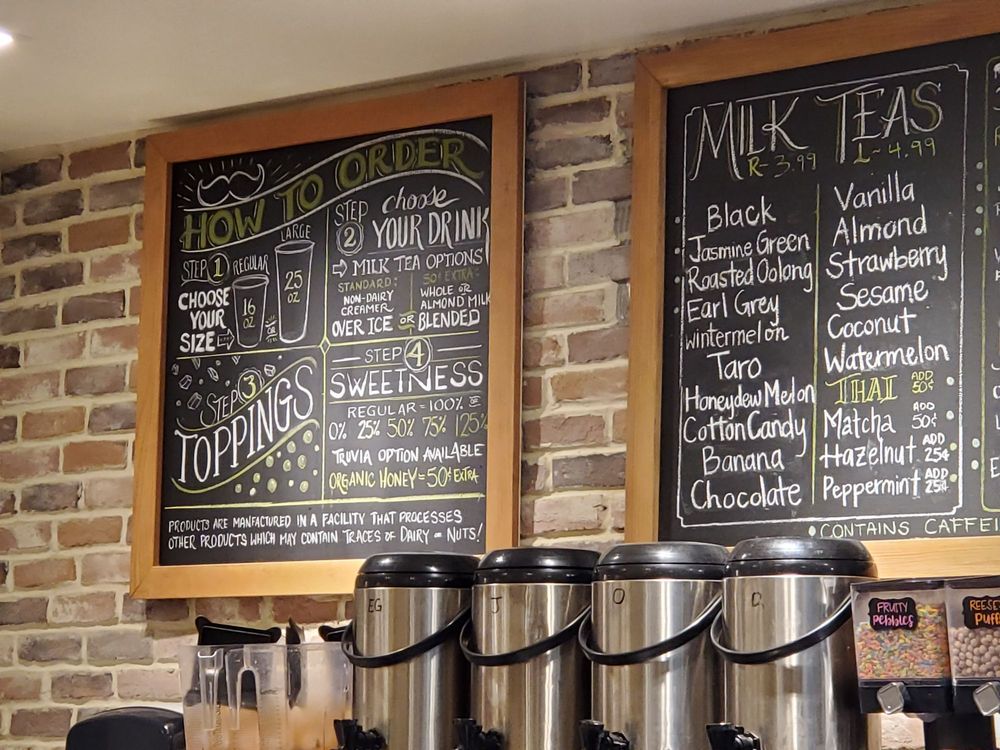 HOW TO ORDER
STEP 1
CHOOSE
YOUR
SIZE
REGULAR
16
OZ
OR
LARGE
25
OZ
STEP 2
choose
YOUR DRINK
MILK TEA OPTIONS
STANDARD:
NON-DAIRY
CREAMER
50¢ EXTRA:
WHOLE OR
ALMOND MILK
OVER ICE OR BLENDED
STEP 3
TOPPINGS
STEP 4
SWEETNESS
REGULAR = 100% OR
0% 25% 50% 75% 125%
TRUVIA OPTION AVAILABLE
ORGANIC HONEY = 50¢ EXTRA
PRODUCTS ARE MANFACTURED IN A FACILITY THAT PROCESSES
OTHER PRODUCTS WHICH MAY CONTAIN TRACES OF DAIRY OR NUTS!
MILK TEAS
R-3.99 L-4.99
Black
Jasmine Green
Roasted Oolong
Earl Grey
wintermelon
Taro
Honeydew Melon
Cotton Candy
Banana
Chocolate
Vanilla
Almond
Strawberry
Sesame
Coconut
Watermelon
THAI ADD 50¢
Matcha ADD 50¢
Hazelnut ADD 25¢
Peppermint ADD 25¢
CONTAINS CAFFEI
EG
J
O
FRUITY
Pebbles
REESE
Puff